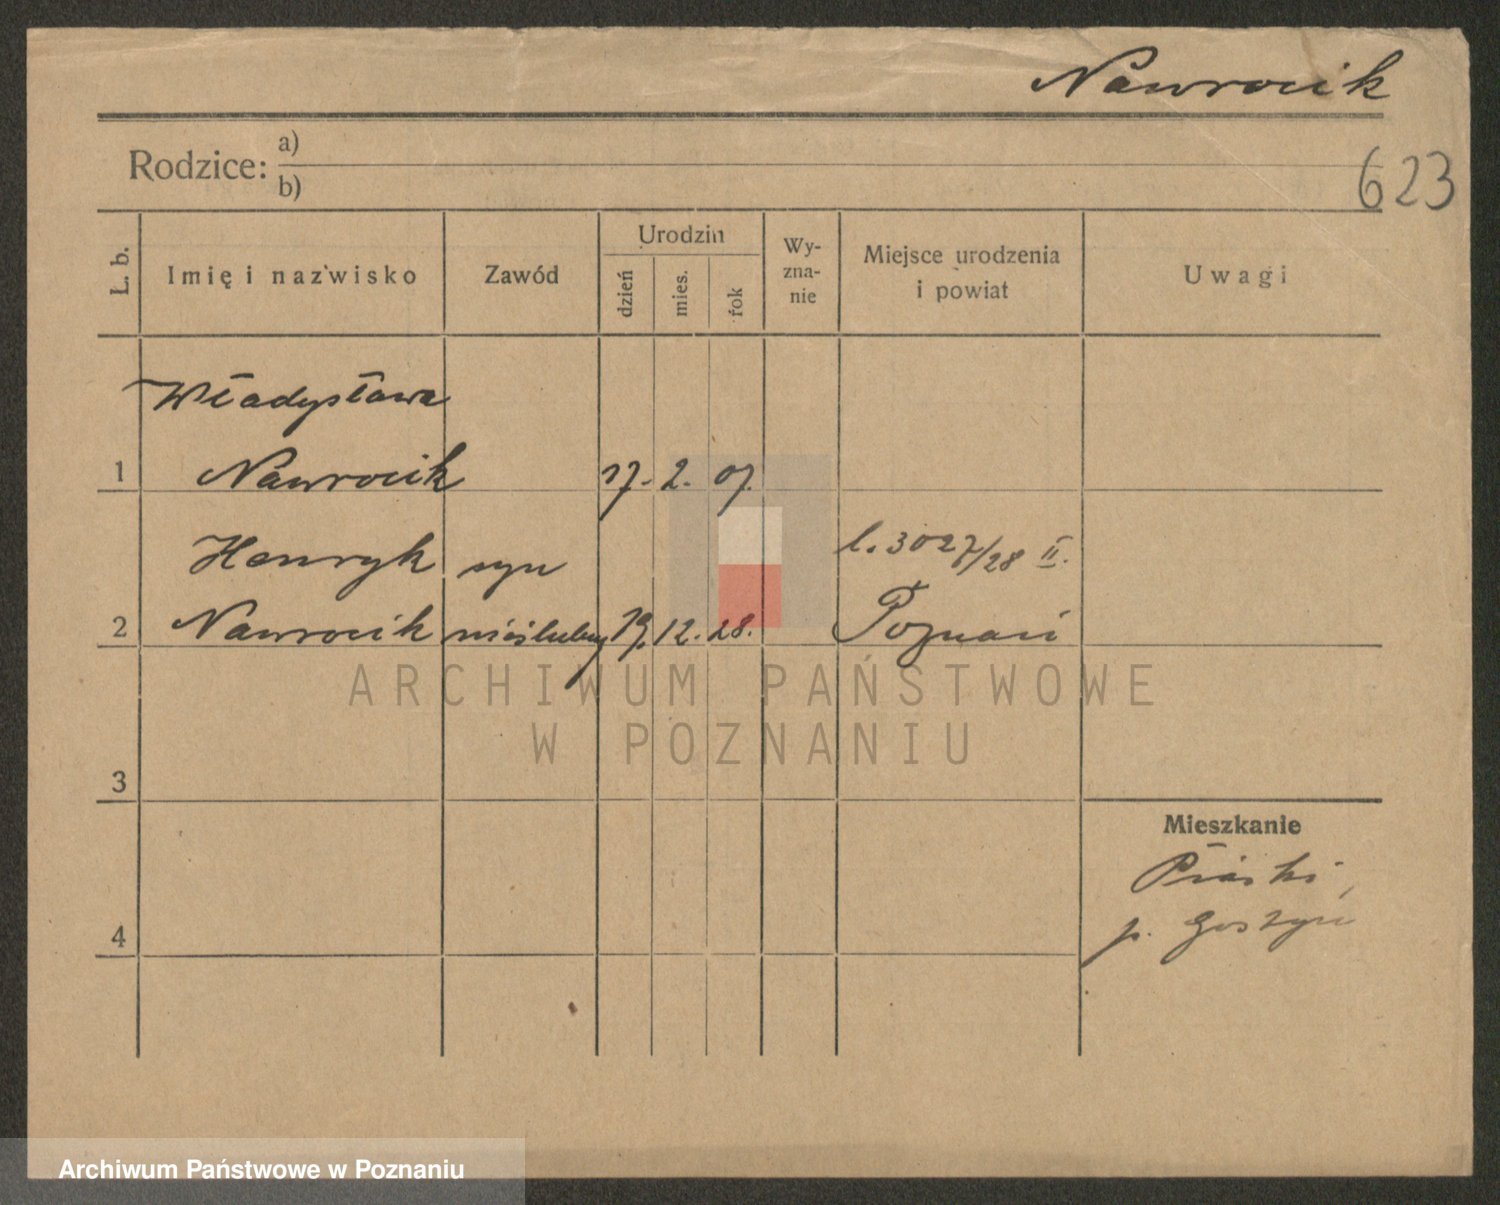 Nawrocik
Rodzice: a)
b)
623
L. b.
Imię i nazwisko
Zawód
Urodzin
dzień
mies.
rok
Wy-
zna-
nie
Miejsce urodzenia
i powiat
Uwagi
Władysława
1 Nawrocik 17. 2. 07.
Henryk syn l. 3027/28 II.
2 Nawrocik nieślubny 19. 12. 28. Poznań
ARCHIWUM PAŃSTWOWE
W POZNANIU
3
Mieszkanie
Piaski,
p. Gostyń
4
Archiwum Państwowe w Poznaniu